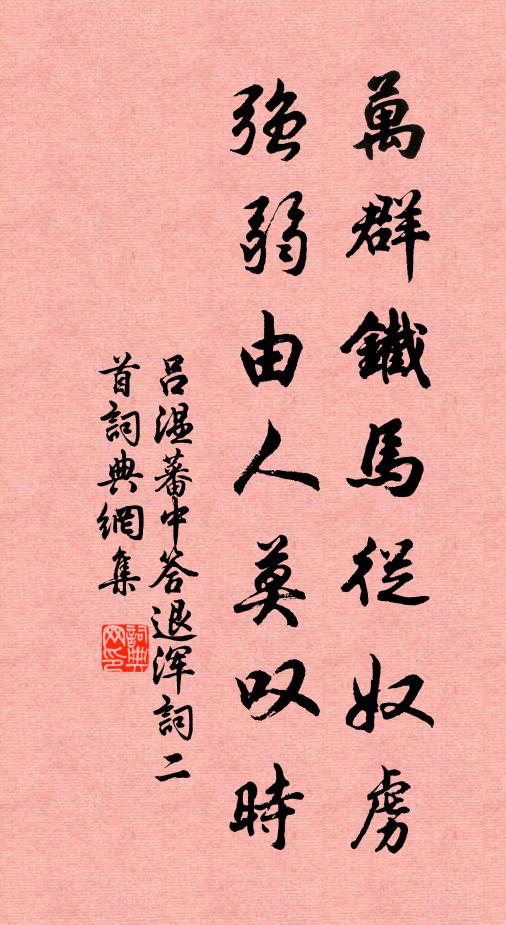 萬群鐵馬從奴虜
強弱由人莫叹時
吕温蕃中答退浑詞二
首詞典網集
詞典
网印